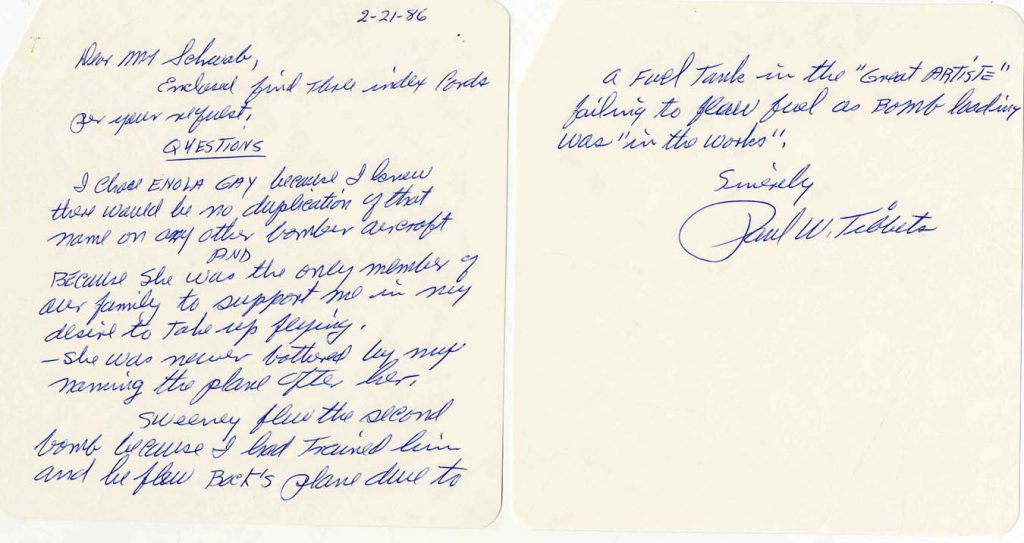 2-21-86
Dear Mr Schwab,
Enclosed find three index Cards
per your request.
QUESTIONS
I chose ENOLA GAY because I knew
there would be no duplication of that
name on any other bomber aircraft
AND
BECAUSE She was the only member of
our family to support me in my
desire to take up flying.
- She was never bothered by my
naming the plane after her.
Sweeney flew the second
bomb because I had Trained him
and he flew Bock's plane due to
a Fuel Tank in the "Great ARTISTE"
failing to flow fuel as Bomb loading
was "in the works".
Sincerely
Paul W. Tibbets